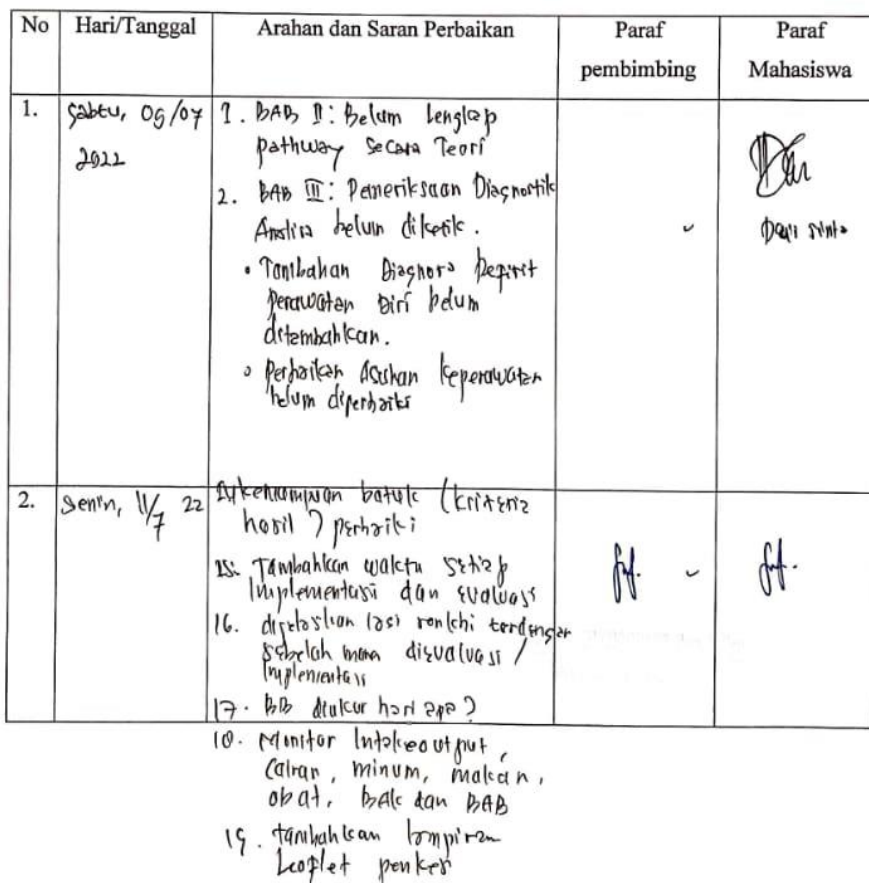 No Hari/Tanggal Arahan dan Saran Perbaikan Paraf pembimbing Paraf Mahasiswa
1. Sabtu, 09/07 2022
1. BAB II: Belum Lengkap
pathway Secara Teori
2. BAB III: Pemeriksaan Diagnostik
Analisa belum diketik.
• Tambahan Diagnosa Depisit
Perawatan Diri belum
ditambahkan.
• Perbaikan Asuhan Keperawatan
belum diperbaiki
Dewi Sinta
2. Senin, 11/7 22
14. kemampuan batuk (kriteria
hasil) perbaiki
15. Tambahkan waktu setiap
Implementasi dan evaluasi
16. dijelaskan lagi ronkhi terdengar
sebelah mana dievaluasi /
Implementasi
17. BB diukur hari apa?
18. Monitor Intakeoutput,
Cairan, minum, makan,
obat, BAK dan BAB
19. tambahkan lampiran
Leaflet penkes